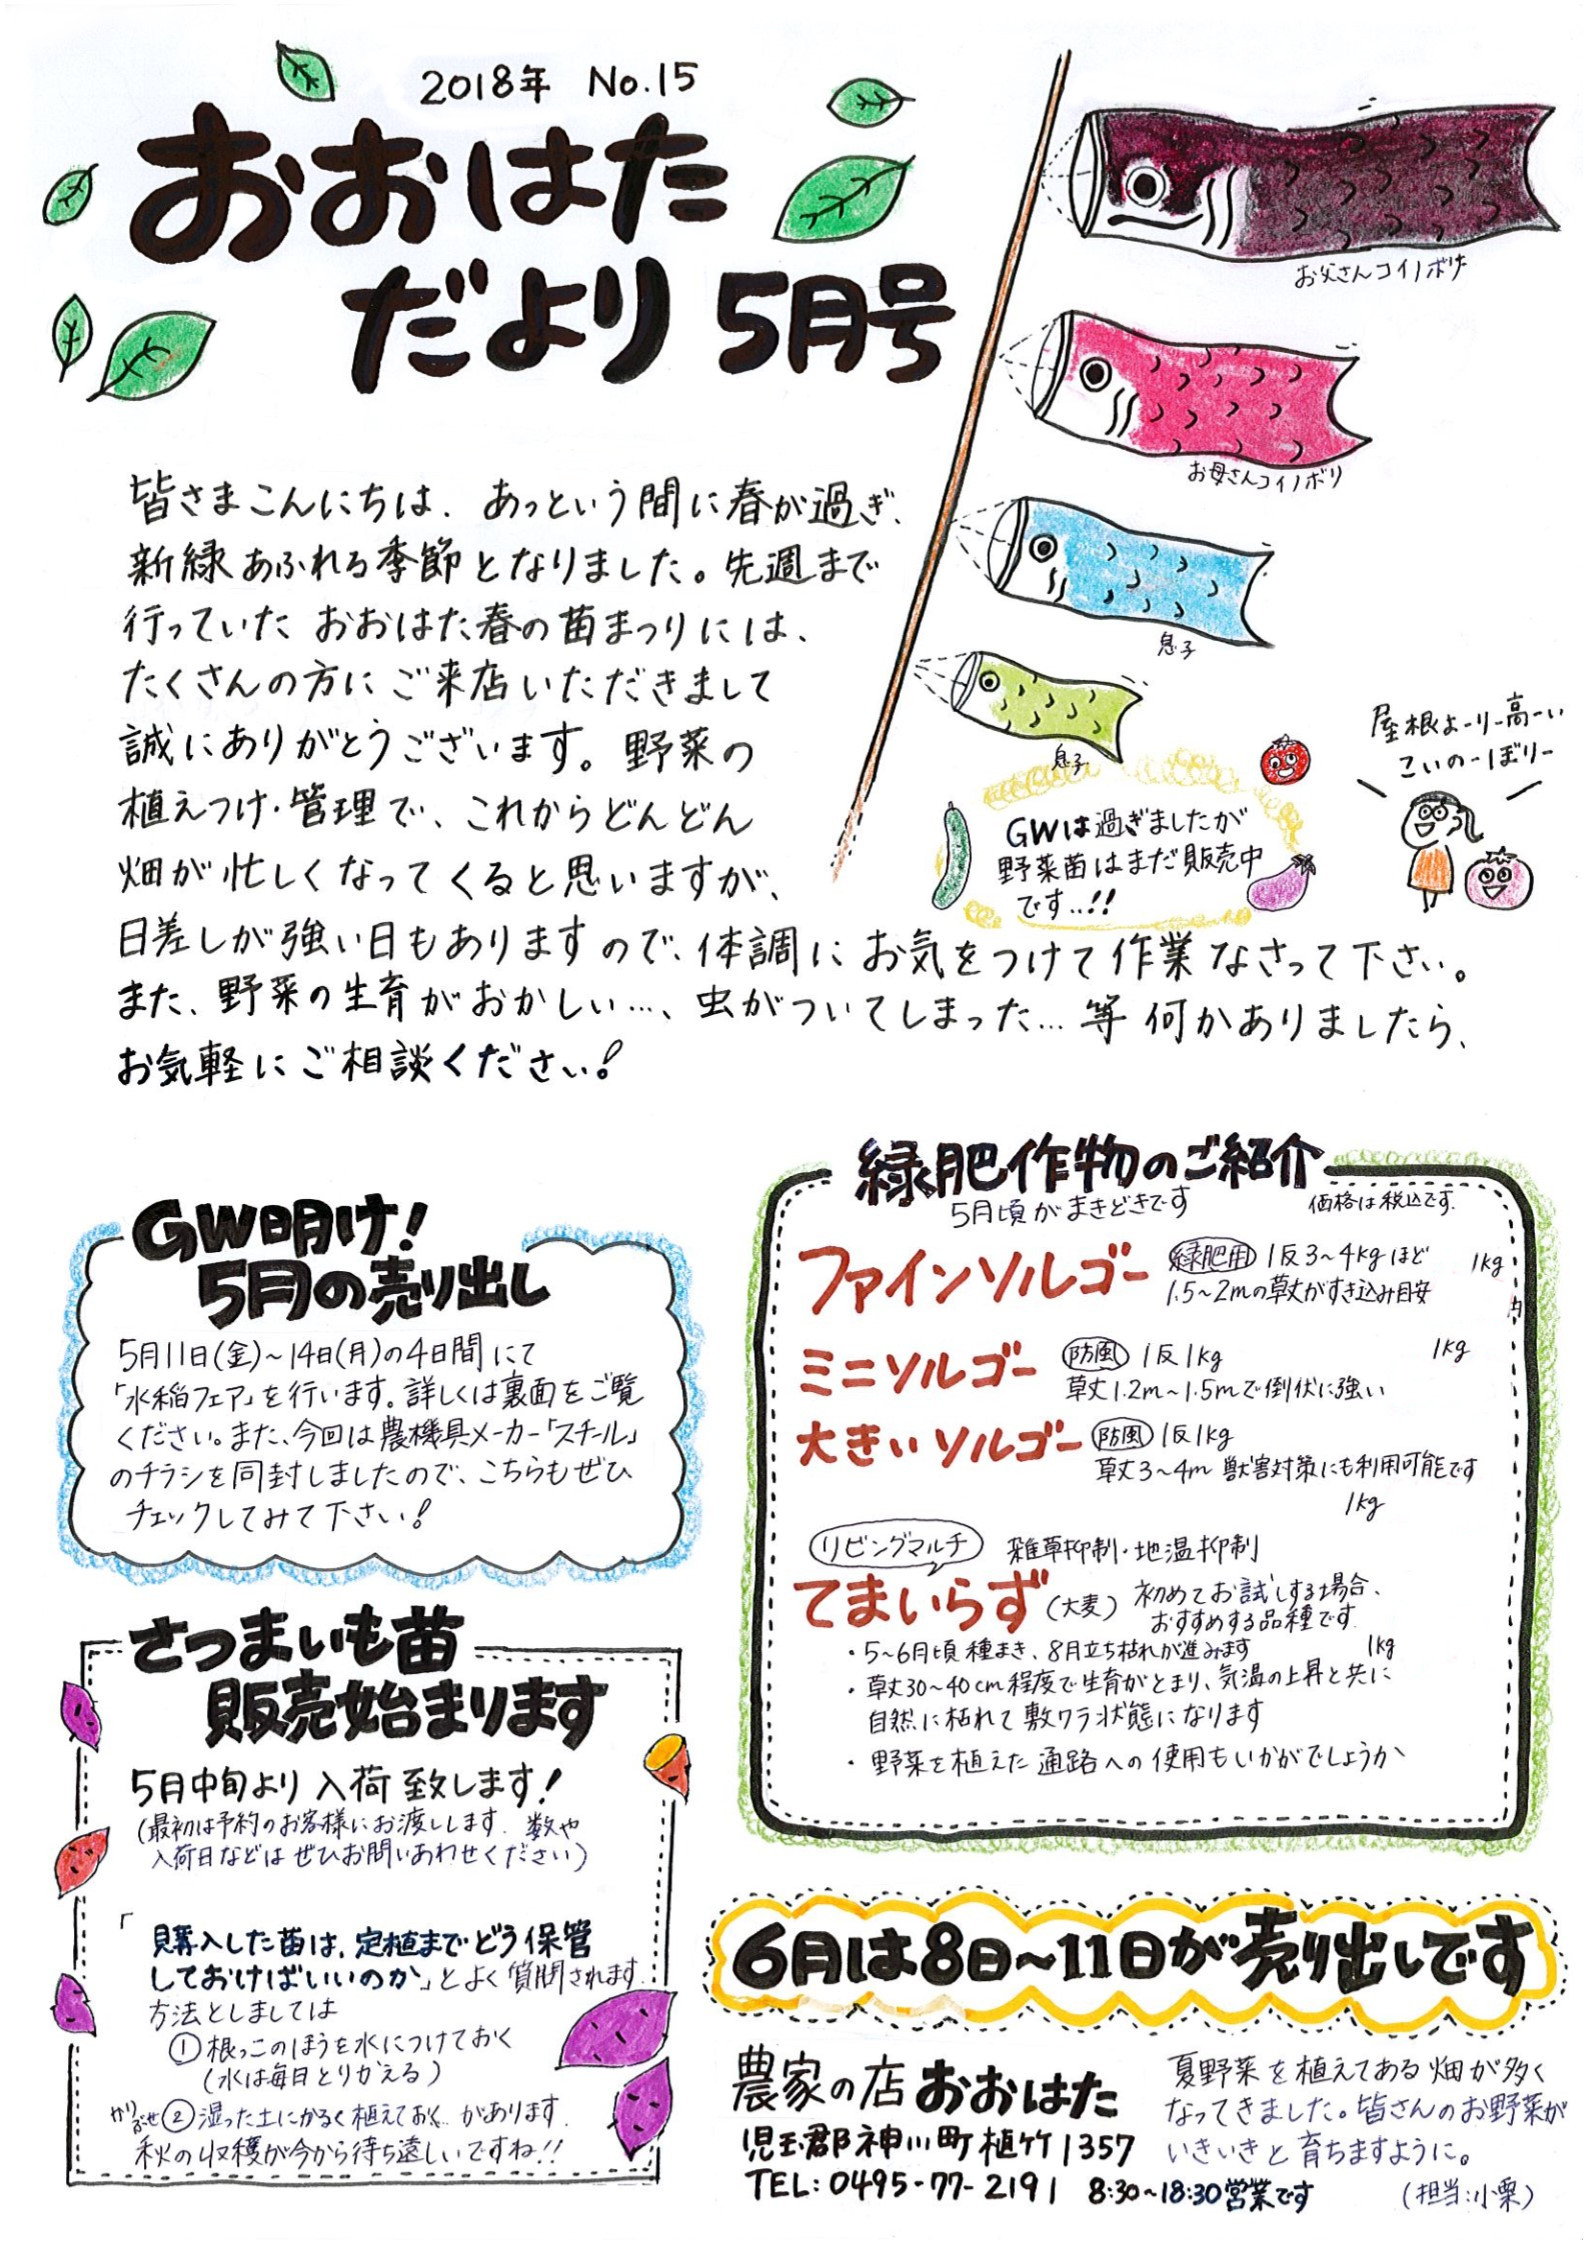 2018年 No.15
おおはた
だより 5月号
お父さんコイノボリ
お母さんコイノボリ
息子
息子
屋根よーりー高ーい
こいのーぼりー
GWは過ぎましたが
野菜苗はまだ販売中
です..!!
皆さまこんにちは、あっという間に春が過ぎ、
新緑あふれる季節となりました。先週まで
行っていた おおはた春の苗まつりには、
たくさんの方にご来店いただきまして
誠にありがとうございます。野菜の
植えつけ・管理で、これからどんどん
畑が忙しくなってくると思いますが、
日差しが強い日もありますので、体調にお気をつけて作業なさって下さい。
また、野菜の生育がおかしい…、虫がついてしまった…等 何かありましたら、
お気軽にご相談ください!
GW明け!
5月の売り出し
5月11日(金)~14日(月)の4日間にて
「水稲フェア」を行います。詳しくは裏面をご覧
ください。また、今回は農機具メーカー「スチール」
のチラシを同封しましたので、こちらもぜひ
チェックしてみて下さい!
さつまいも苗
販売始まります
5月中旬より入荷致します!
(最初は予約のお客様にお渡しします。数や
入荷日などはぜひお問いあわせください)
「購入した苗は、定植までどう保管
しておけばいいのか」とよく質問されます。
方法としましては
①根っこのほうを水につけておく
(水は毎日とりかえる)
かりぶせ ②湿った土にかるく植えておく があります。
秋の収穫が今から待ち遠しいですね!!
緑肥作物のご紹介
5月頃がまきどきです
価格は税込です。
ファインソルゴー 緑肥用 1反3~4kgほど 1kg
1.5~2mの草丈がすき込み目安
ミニソルゴー 防風 1反1kg 1kg
草丈1.2m~1.5mで倒伏に強い
大きいソルゴー 防風 1反1kg
草丈3~4m 獣害対策にも利用可能です
1kg
リビングマルチ 雑草抑制・地温抑制
てまいらず(大麦) 初めてお試しする場合、
おすすめする品種です。
・5~6月頃種まき、8月立ち枯れが進みます 1kg
・草丈30~40cm程度で生育がとまり、気温の上昇と共に
自然に枯れて敷ワラ状態になります
・野菜を植えた通路への使用もいかがでしょうか
6月は8日~11日が売り出しです
農家の店 おおはた
児玉郡神川町植竹1357
TEL:0495-77-2191 8:30~18:30営業です
夏野菜を植えてある畑が多く
なってきました。皆さんのお野菜が
いきいきと育ちますように。
(担当:小栗)